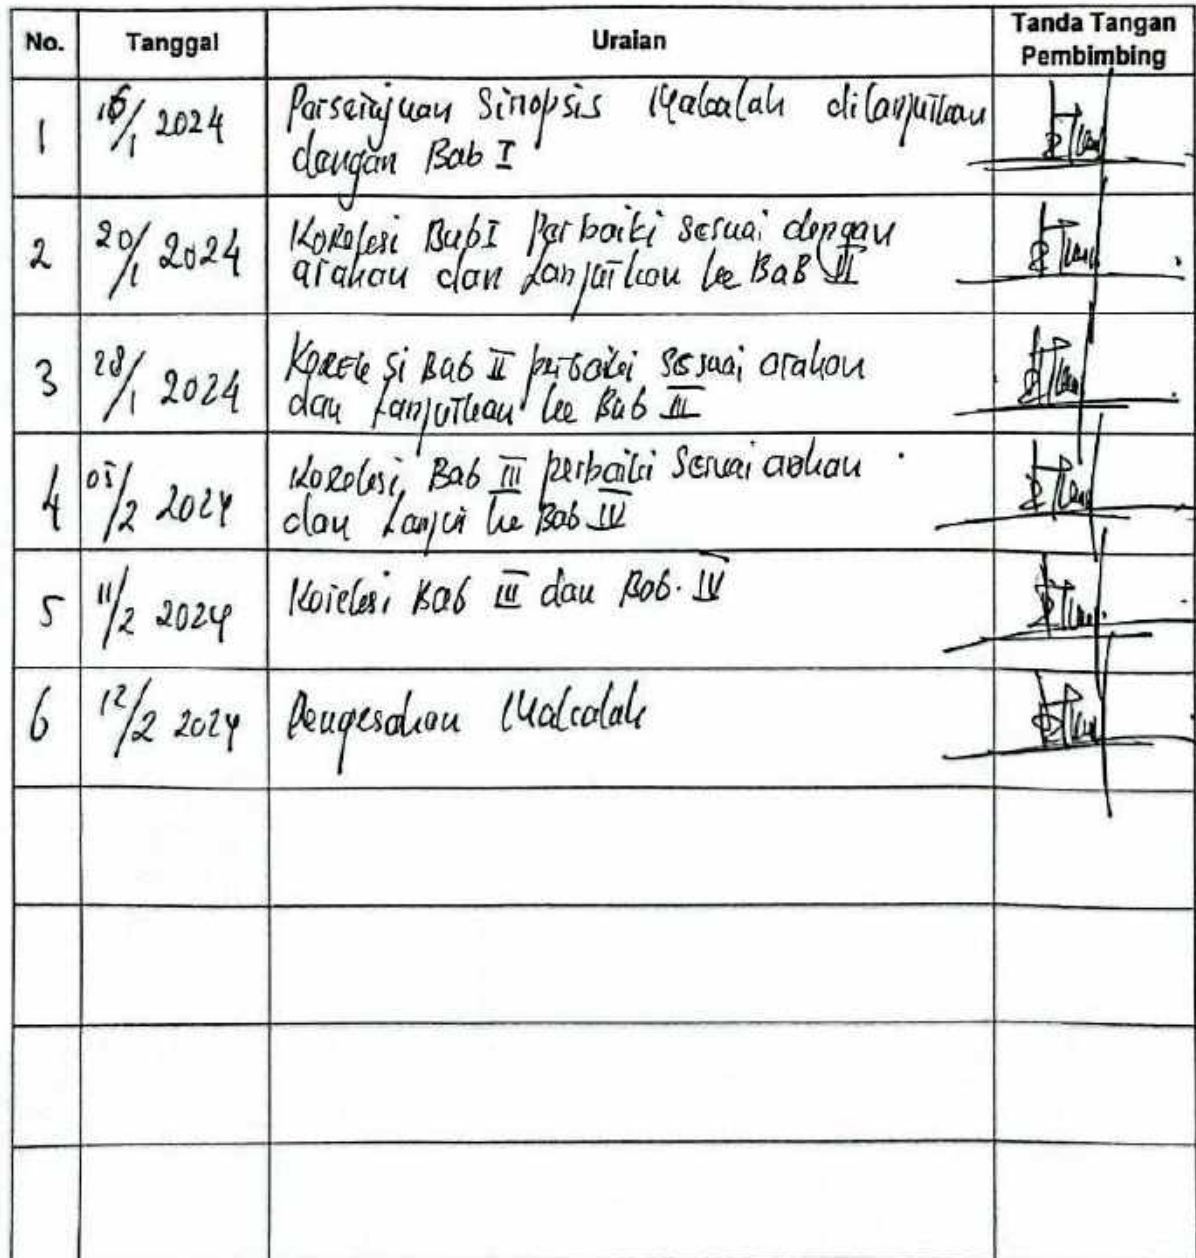 No. Tanggal Uraian Tanda Tangan
Pembimbing
1 16/1 2024 Persetujuan Sinopsis Makalah dilanjutkan
dengan Bab I
2 20/1 2024 Koreksi Bab I Perbaiki sesuai dengan
arahan dan Lanjutkan ke BaB II
3 28/1 2024 Koreksi Bab II perbaiki sesuai arahan
dan Lanjutkan ke Bab III
4 05/2 2024 Koreksi Bab III perbaiki sesuai arahan
dan Lanjut ke Bab IV
5 11/2 2024 Koreksi Bab III dan Bab. IV
6 12/2 2024 Pengesahan Makalah